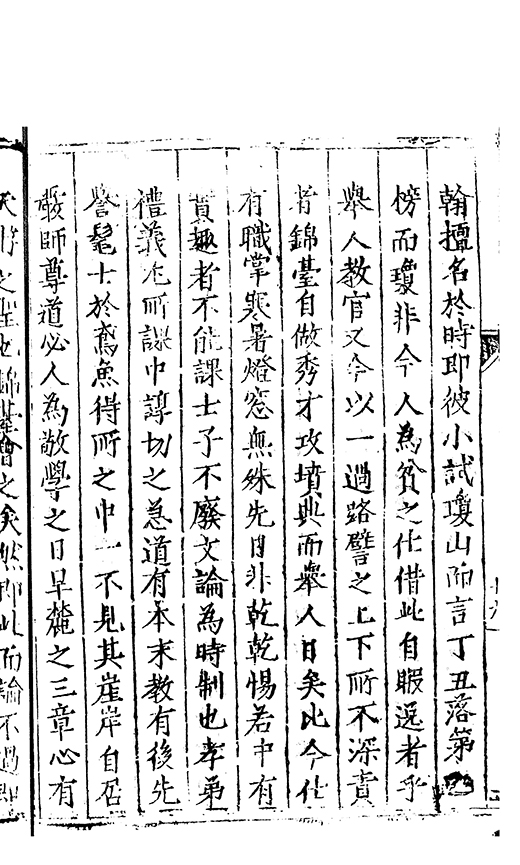 翰擅名於時即彼小試瓊山而言丁丑落第
榜而瓊非今人為貧之仕借此自暇逸者乎
舉人教官又今以一過路譬之上下所不深責
者錦臺自做秀才攻墳典而舉人日矣比今仕
有職掌寒暑燈窓無殊先日非乾乾惕若中有
真趣者不能課士子不廢文論為時制也孝弟
禮義尤所課中諄切之急道有本末教有後先
譽髦士於鳶魚得所之中一不見其崖岸自居
嚴師尊道必人為敬學之日旱麓之三章心有
之聖也錦臺會之矣然即此而論不過即